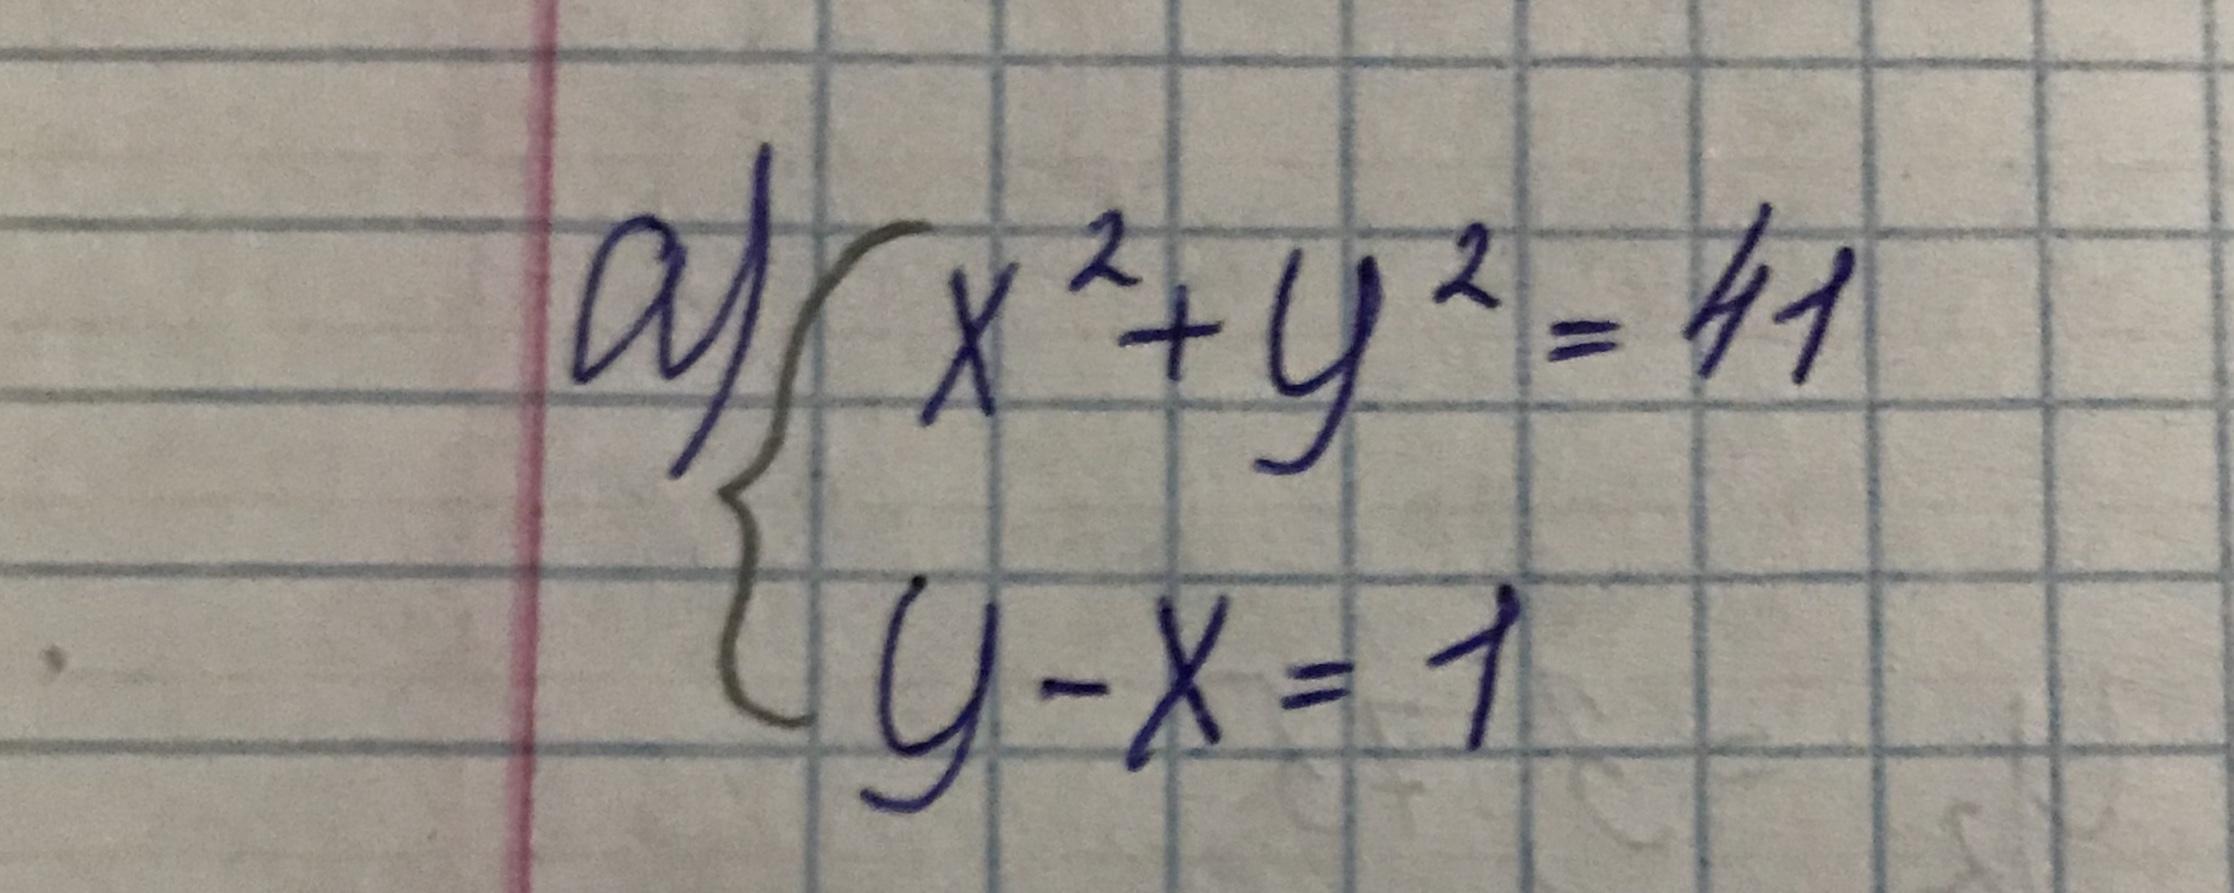 a) { x² + y² = 41
y - x = 1